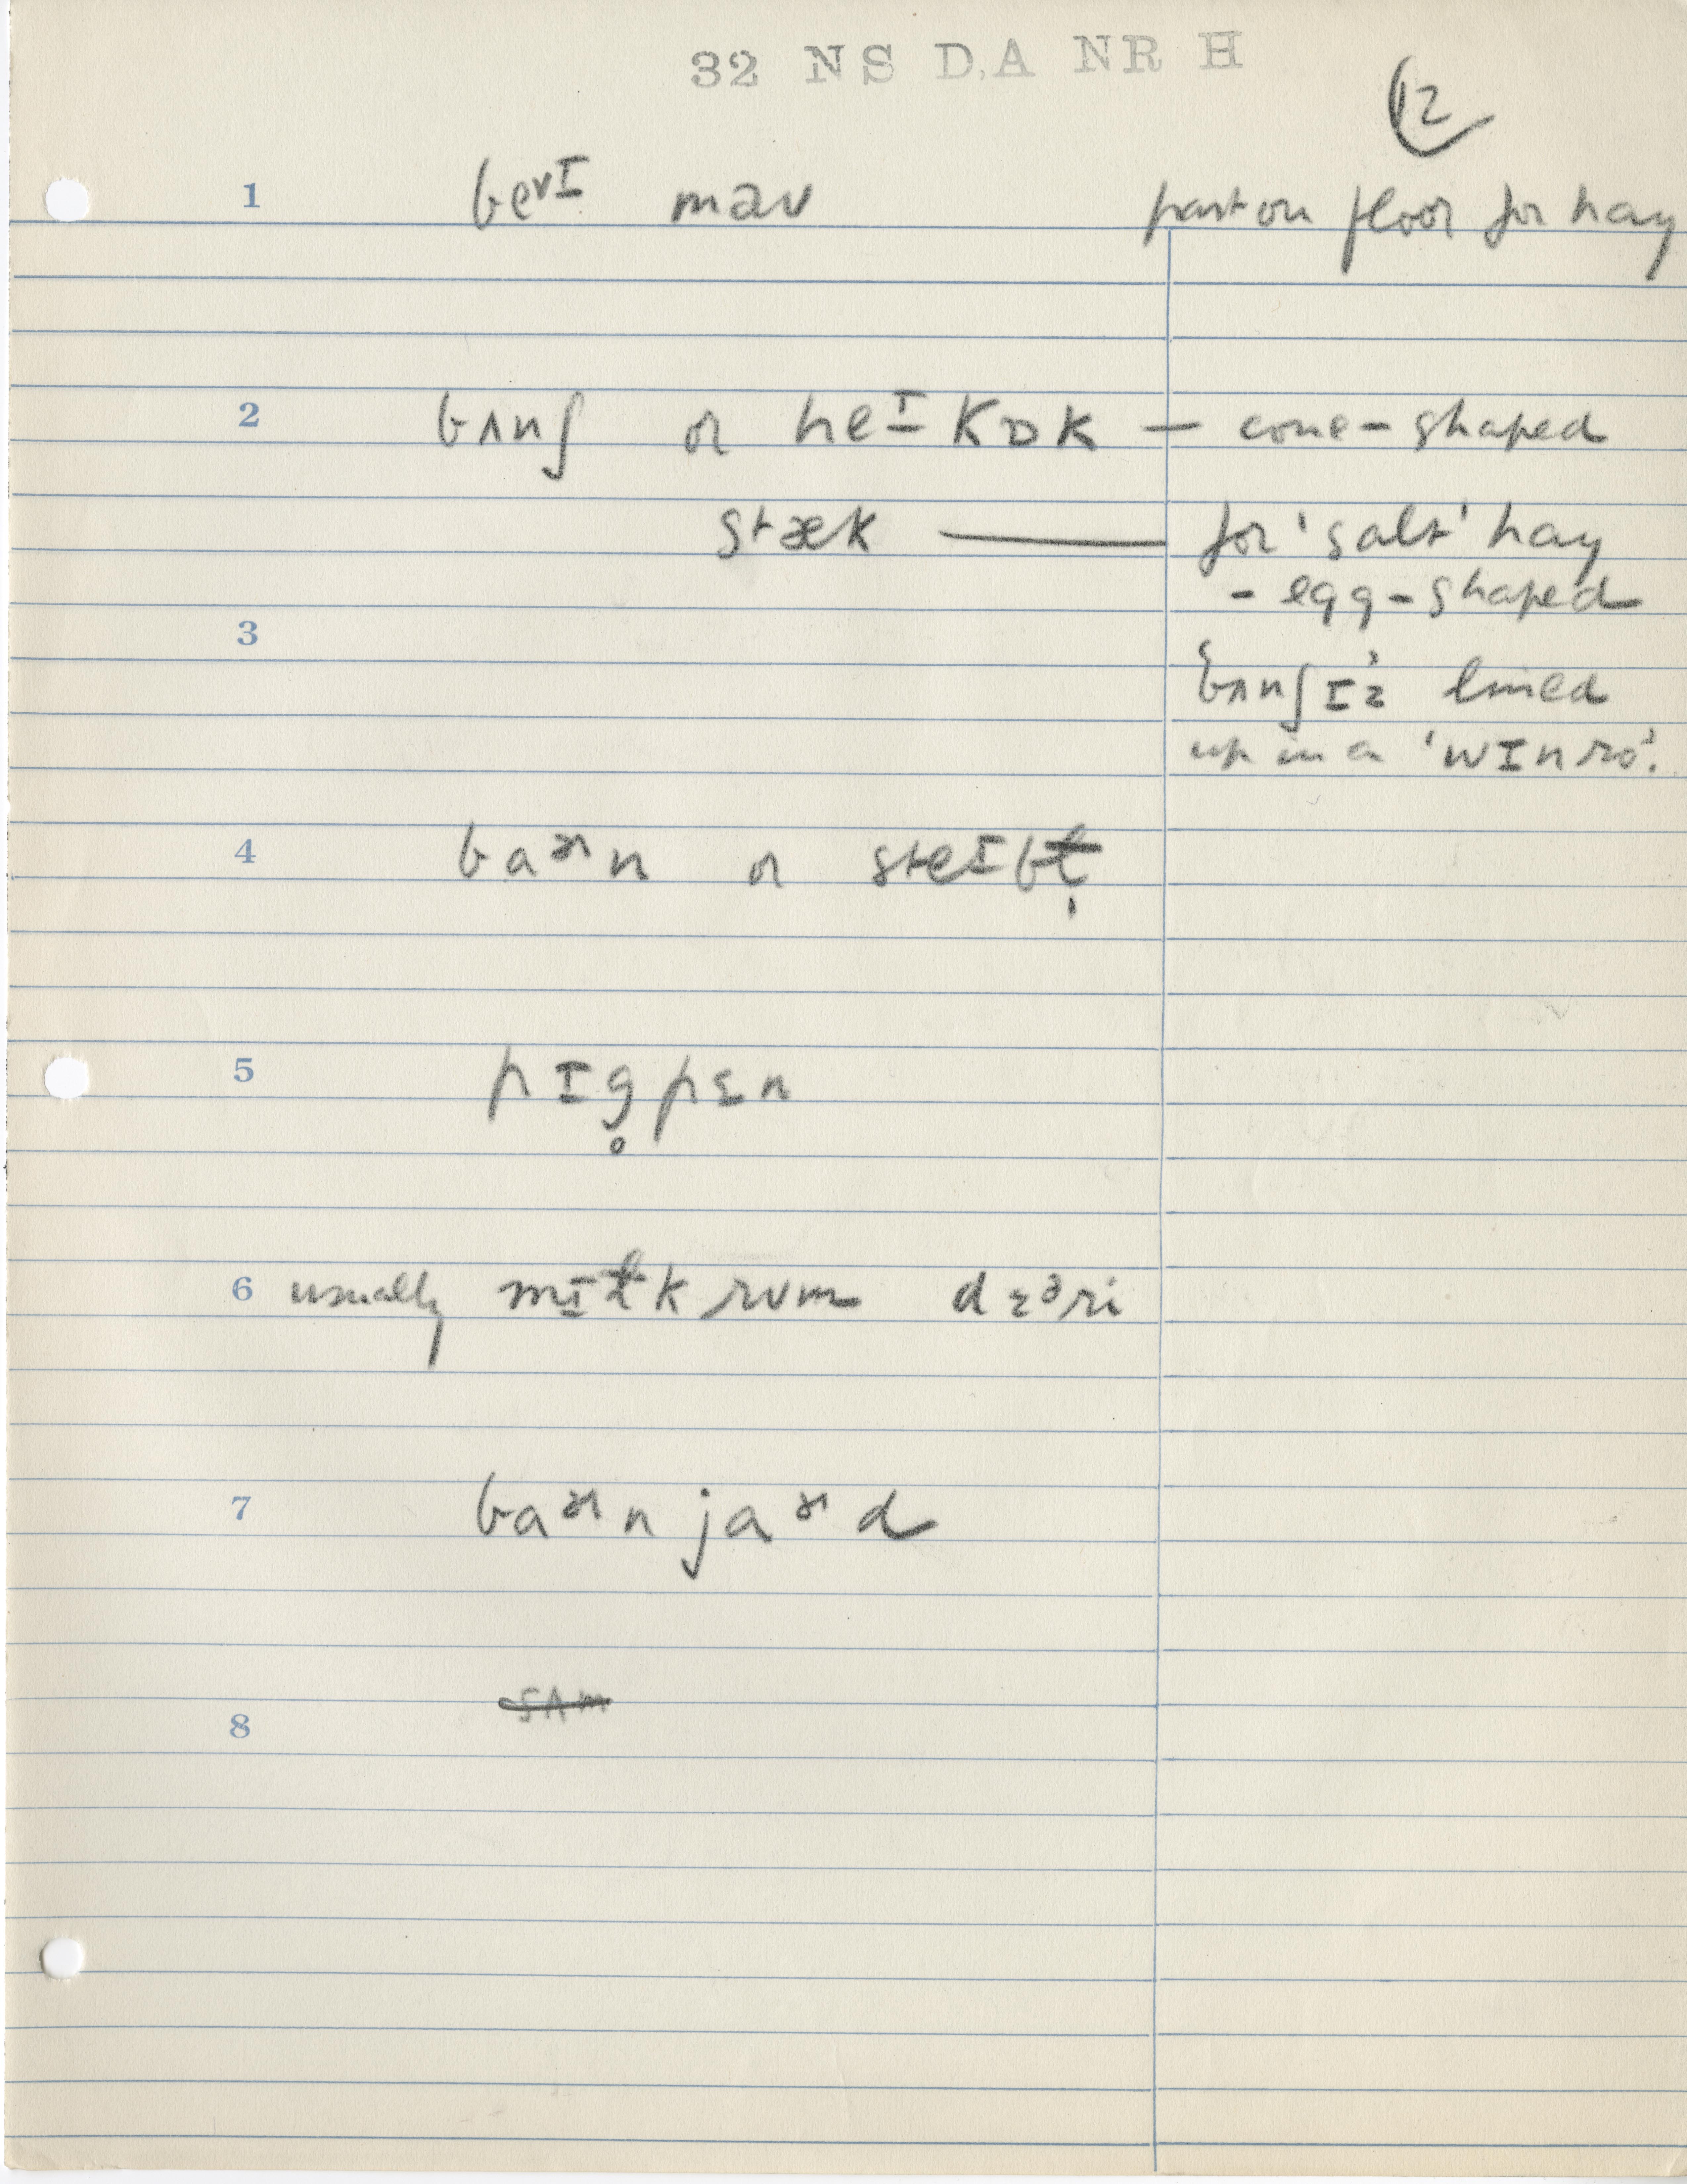 32 NS D,A NR H
12
1 be^vɪ maʊ part on floor for hay
2 bʌnʃ or heɪkɒk — cone-shaped
stæk —— for 'salt' hay
- egg-shaped
3 'bʌnʃɪz' lined
up in a 'wɪnro'.
4 baᵊɹn or steɪbɫ̩
5 pɪg̥pɛn
6 usually mɪɫkrʊm dɛᵊri
7 baᵊɹnjaᵊɹd
8 sʌm